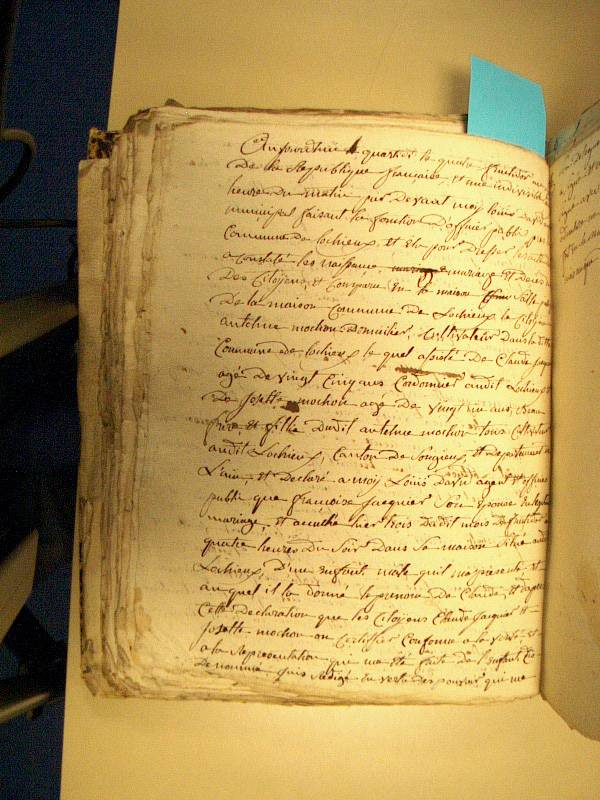 Aujourdhui le quatrier le quatre fructidor
De la Republique francaise, et une indivisible
heure du matin par devant moy louis david
municipal faisant les fonction d'officier public
Commune de lochieux, et élu pour Dresser
a constaté les naissance, mariage et deces
Des Citoÿens, et Comparu en la maison salle
De la maison Commune De Lochieux le Citoyen
antelme mochon Domicilier, Cultivateur Dans la ditte
Commune de lochieux le quel assisté De Claude jacquier
agé De vingt Cinq ans Cordonnier audit Lochieux et
De Josette mochon age De vingt un ans, beau
frere et fillie Dudit antelme mochon tous Cultivateur
audit Lochieux, Canton de Songieu et departement de
L'ain, et Declaré a moy Louis David agent et officier
public que francoise jacquier son epouse En legitime
mariage, et acouché hier trois Dudit mois de fructidor a
quatre heures Du Soir Dans Sa maison Situé audit
Lochieux, D'une Enfant male quil ma presenté et
au quel il la donné le prenom De Claude, et dapres
Cette Declaration que les Citoÿens Claude jacquier et
Josette mochon on Certifier Conforme a la verité et
a la Representation qui ma été faite De l'Enfant
Denommé, jais Redigé en vertu des pouvoirs qui me